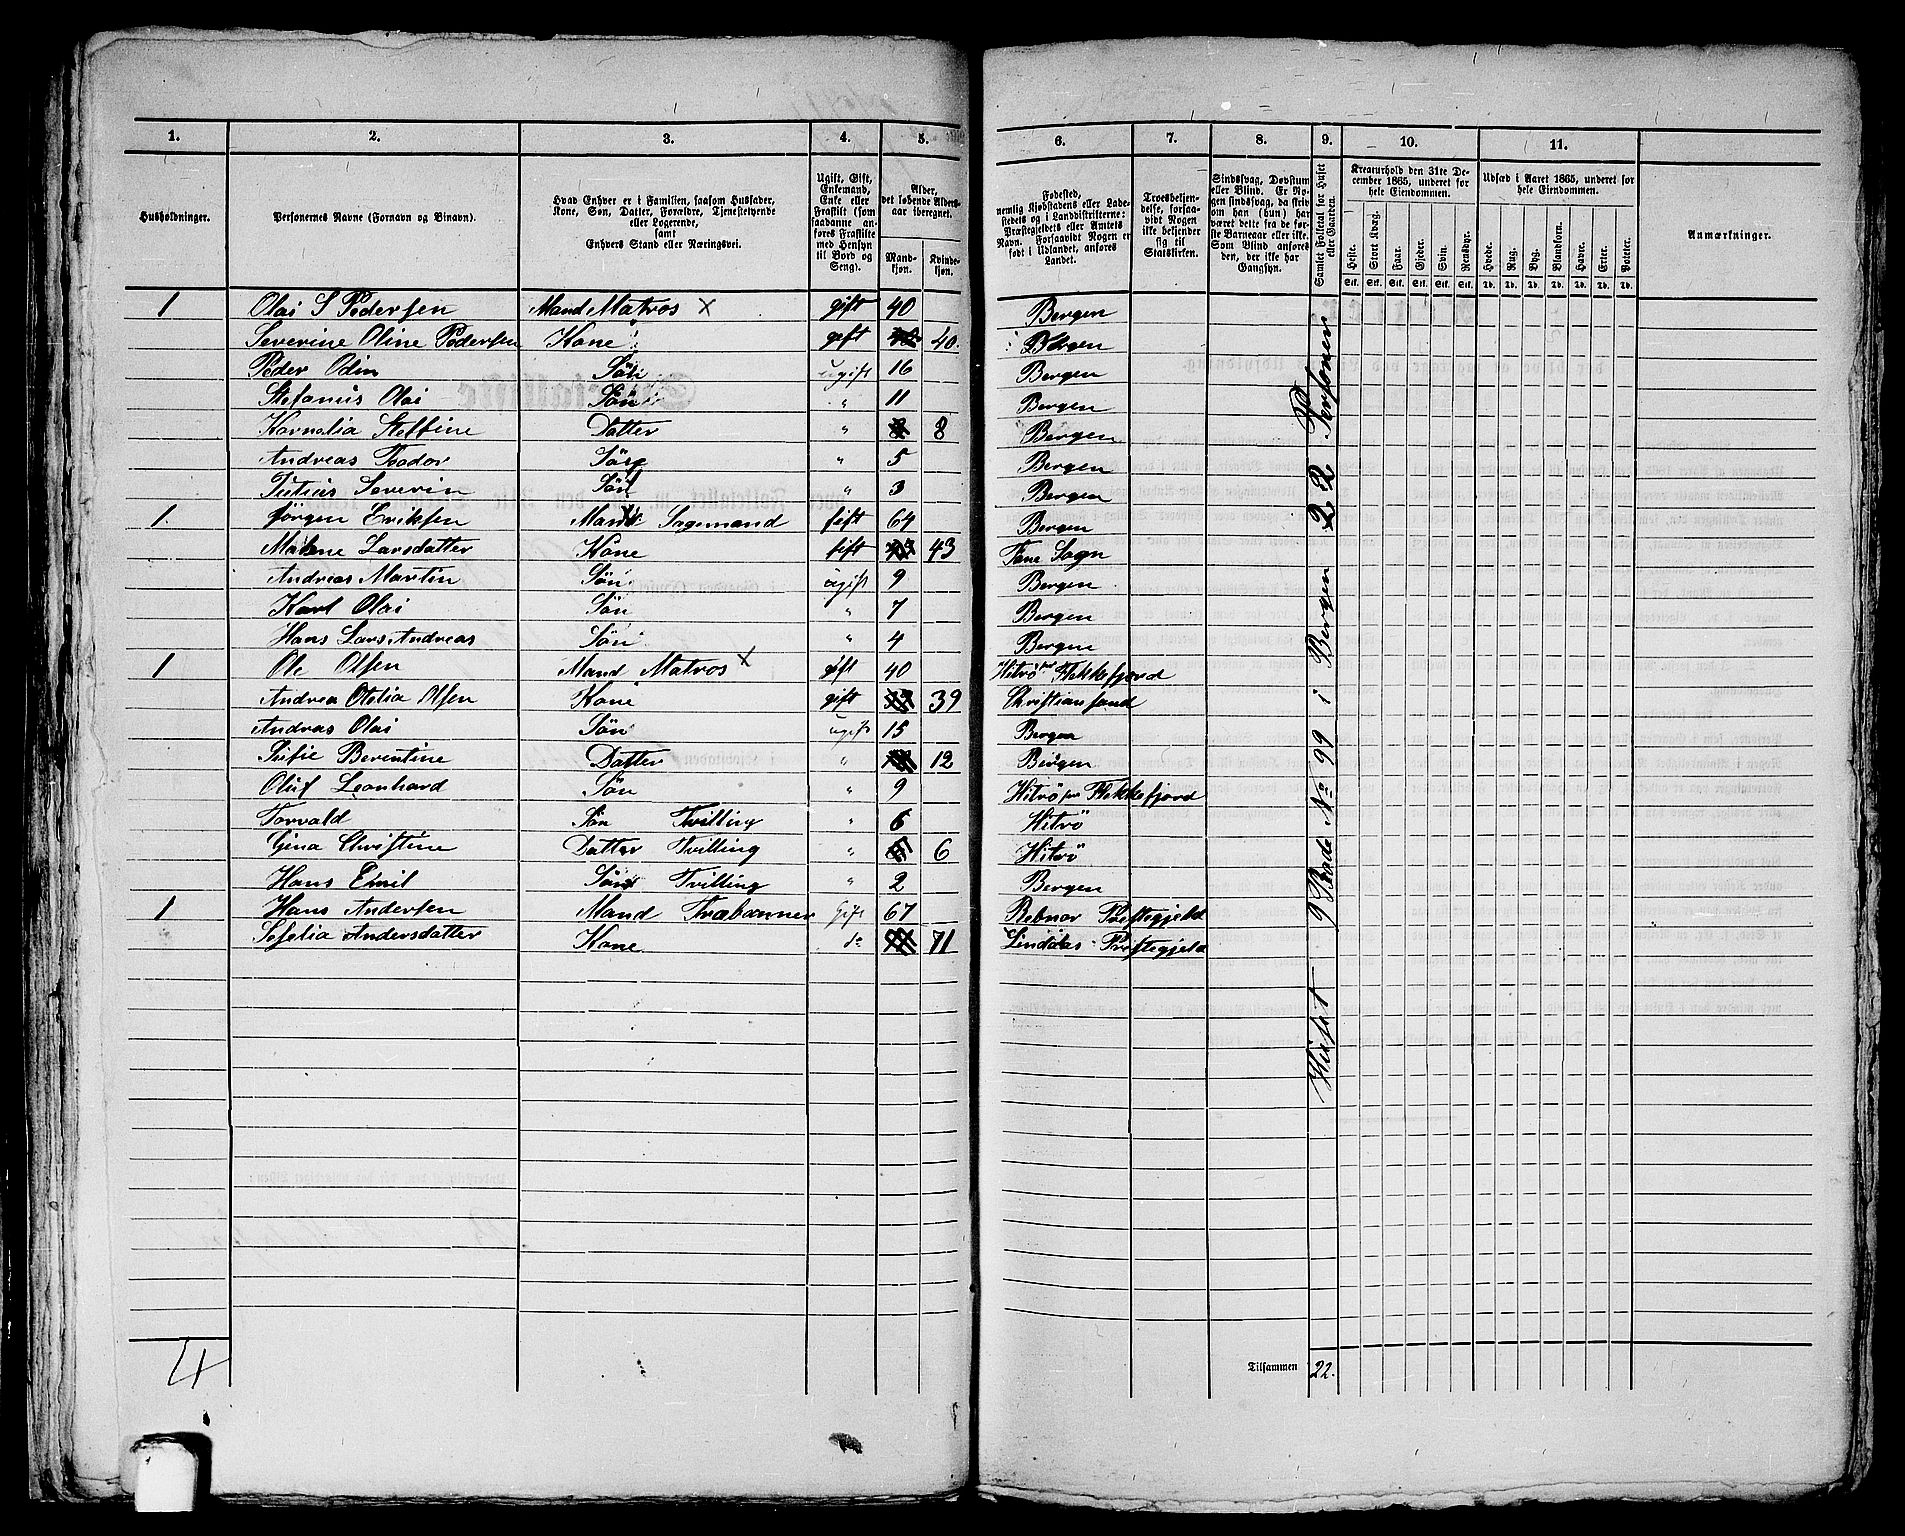 1. 2. 3. 4. 5. 6. 7. 8. 9. 10. 11.
Husholdninger.
Personernes Navne (Fornavn og Binavn).
Hvad Enhver er i Familien, saasom Husfader,
Kone, Søn, Datter, Forældre, Tjenestetyende
eller Logerende,
samt
Enhvers Stand eller Næringsvei.
Ugift, Gift,
Enkemand,
Enke eller
Fraskilt (som
saadanne an-
føres Fraskilte
med Hensyn
til Bord og
Seng).
Alder,
det løbende Alders-
aar iberegnet.
Mand-
kjøn.
Kvinde-
kjøn.
Fødested,
nemlig Kjøbstadens eller Lade-
stedets og i Landdistrikterne:
Præstegjeldets eller Amtets
Navn. Forsaavidt Nogen er
født i Udlandet, anføres
Landet.
Troesbekjen-
delse, forsaa-
vidt Nogen
ikke bekjender
sig til
Statskirken.
Sindssvag, Døvstum
eller Blind. Er No-
gen sindssvag, da skriv
om han (hun) har
været dette fra de før-
ste Barneaar eller ikke.
Som Blind anføres
den, der ikke har
Gangsyn.
Samlet Folketal for Huset
eller Gaarden.
Kreaturhold den 31te De-
cember 1865, underet for
hele Eiendommen.
Heste. Stort Kvæg. Faar. Gjeder. Svin. Rensdyr.
Stk. Stk. Stk. Stk. Stk. Stk.
Udsæd i Aaret 1865, underet for
hele Eiendommen.
Hvede. Rug. Byg. Blandkorn. Havre. Erter. Poteter.
Td. Td. Td. Td. Td. Td. Td.
Anmærkninger.
1 Olai S Pedersen Mand Matros x gift 40 Bergen
Severine Oline Pedersen Kone gift 40. Bergen
Peder Odin Søn ugift 16 Bergen
Stefanus Olai Søn " 11 Bergen
Kornelia Steffine Datter " 8 Bergen
Andreas Teodor Søn " 5 Bergen
Julius Severin Søn " 3 Bergen
1. Jørgen Eriksen Mand Sagemand gift 64 Bergen
Malene Larsdatter Kone gift 43 Fane Sogn
Andreas Martin Søn ugift 9 Bergen
Karl Olai Søn " 7 Bergen
Hans Lars Andreas Søn " 4 Bergen
1 Ole Olsen Mand Matros x gift 40 Hitrø Flekkefjord
Andrea Otelia Olsen Kone gift 39 Christiansand
Andras Olai Søn ugift 15 Bergen
Sufie Berentine Datter " 12 Bergen
Oluf Leonhard Søn " 9 Hitrø Flekkefjord
Torvald Søn Tvilling " 6 Hitrø
Gina Christine Datter Tvilling " 6 Hitrø
Hans Emil Søn Tvilling " 2 Bergen
1 Hans Andersen Mand Gift 67 Præstegjeld
Sefelia Andersdatter Kone do 71 Lindaas Prestegjeld
Huset 9 Rode No 99 i Bergen 22 Personer
4
Tilsammen 22.